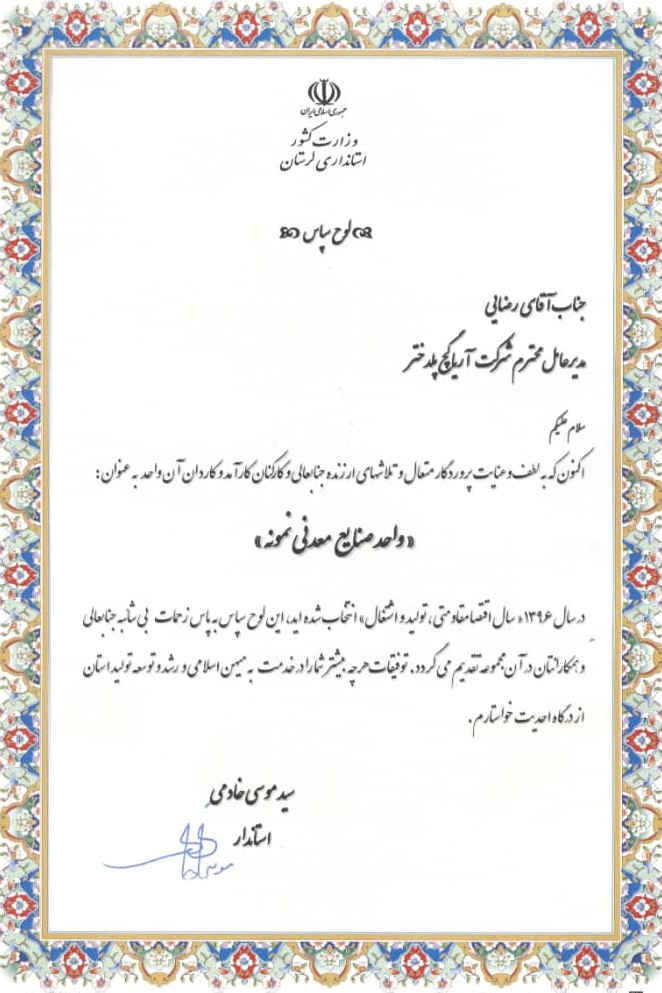 جمهوری اسلامی ایران
وزارت کشور
استانداری لرستان
لوح سپاس
جناب آقای رضایی
مدیرعامل محترم شرکت آریا گچ پلدختر
سلام علیکم
اکنون که به لطف و عنایت پروردگار متعال و تلاشهای ارزنده جنابعالی و کارکنان کارآمد و کاردان آن واحد به عنوان :
«واحد صنایع معدنی نمونه»
در سال ۱۳۹۶ «سال اقتصاد مقاومتی، تولید و اشتغال» انتخاب شده اید، این لوح سپاس به پاس زحمات بی شائبه جنابعالی
و همکارانتان در آن مجموعه تقدیم می گردد. توفیقات هرچه بیشتر شما را در خدمت به میهن اسلامی و رشد و توسعه تولید استان
از درگاه احدیت خواستارم.
سید موسی خادمی
استاندار